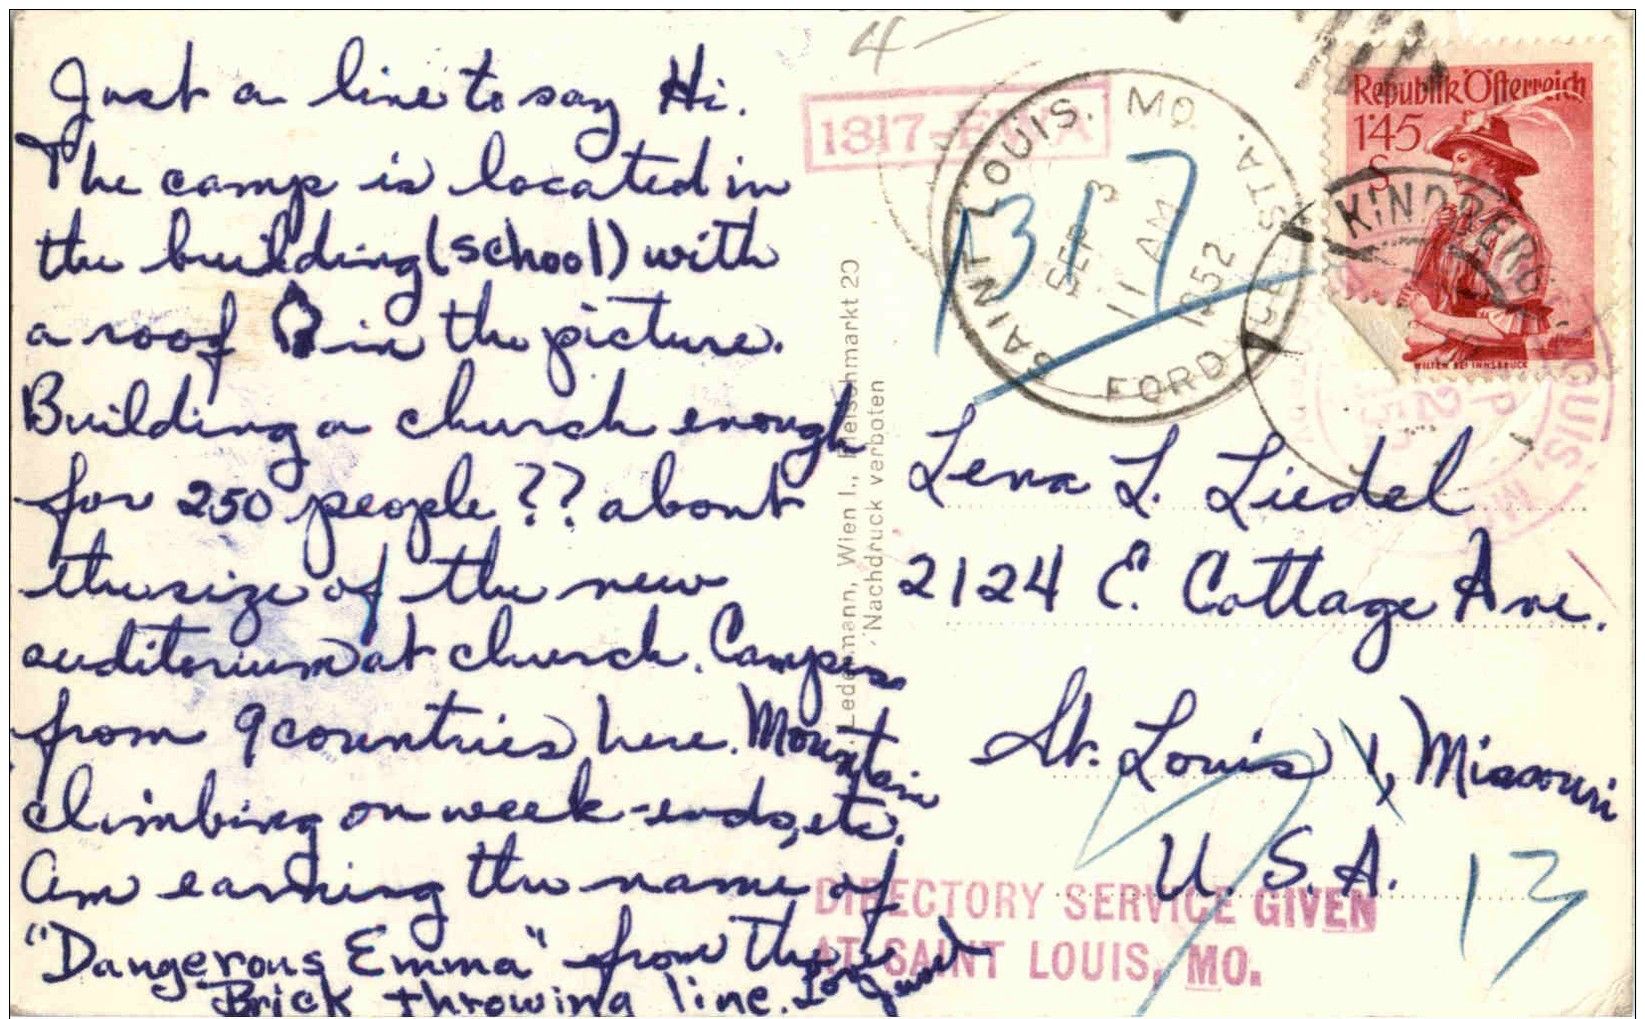 Just a line to say Hi.
The camp is located in
the building (school) with
a roof in the picture.
Building a church enough
for 250 people?? about
the size of the new
auditorium at church. Campers
from 9 countries here. Mountain
climbing on week-ends, etc.
Am earning the name of
"Dangerous Emma" from the
Brick throwing line.
4
1317
SAINT LOUIS, MO.
SEP 3
11 AM
1952
FORD
STA.
Republik Österreich
1'45
S
WILTEN BEI INNSBRUCK
KINDBERG
Wien I., Fleischmarkt 20
Nachdruck verboten
Lena L. Liedel
2124 E. Cottage Ave.
St. Louis 1, Missouri
U.S.A.
13
DIRECTORY SERVICE GIVEN
AT SAINT LOUIS, MO.